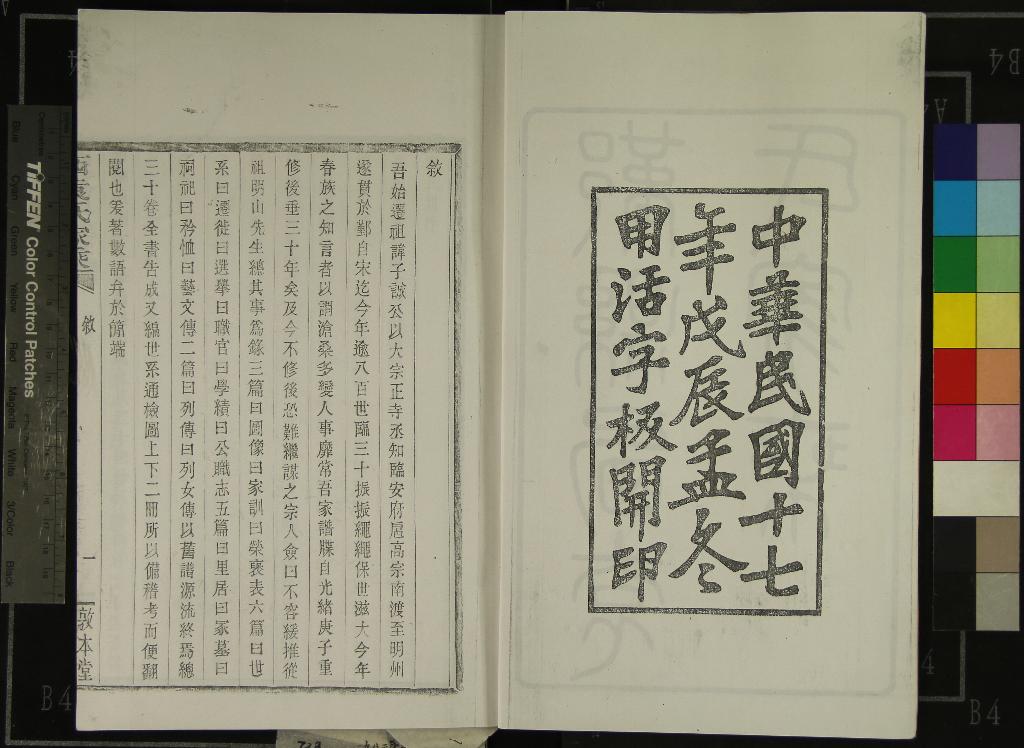 中華民國十七
年戊辰孟冬
用活字板開印
敘
吾始遷祖諱子誠公以大宗正寺丞知臨安府扈高宗南渡至明州
遂貫於鄞自宋迄今年逾八百世臨三十振振繩繩保世滋大今年
春族之知言者以謂滄桑多變人事靡常吾家譜牒自光緒庚子重
修後垂三十年矣及今不修後恐難繼謀之宗人僉曰不容緩推從
祖明山先生總其事為錄三篇曰圖像曰家訓曰榮褒表六篇曰世
系曰遷徙曰選舉曰職官曰學績曰公職志五篇曰里居曰冢墓曰
祠祀曰矜恤曰藝文傳二篇曰列傳曰列女傳以舊譜源流終焉總
三十卷全書告成又編世系通檢圖上下二冊所以備稽考而便翻
閱也爰著數語弁於簡端
敘
一
敦本堂
TIFFEN Color Control Patches
Blue
Cyan
Green
Yellow
Red
Magenta
White
3/Color
Black
B4
B4
B4
A4